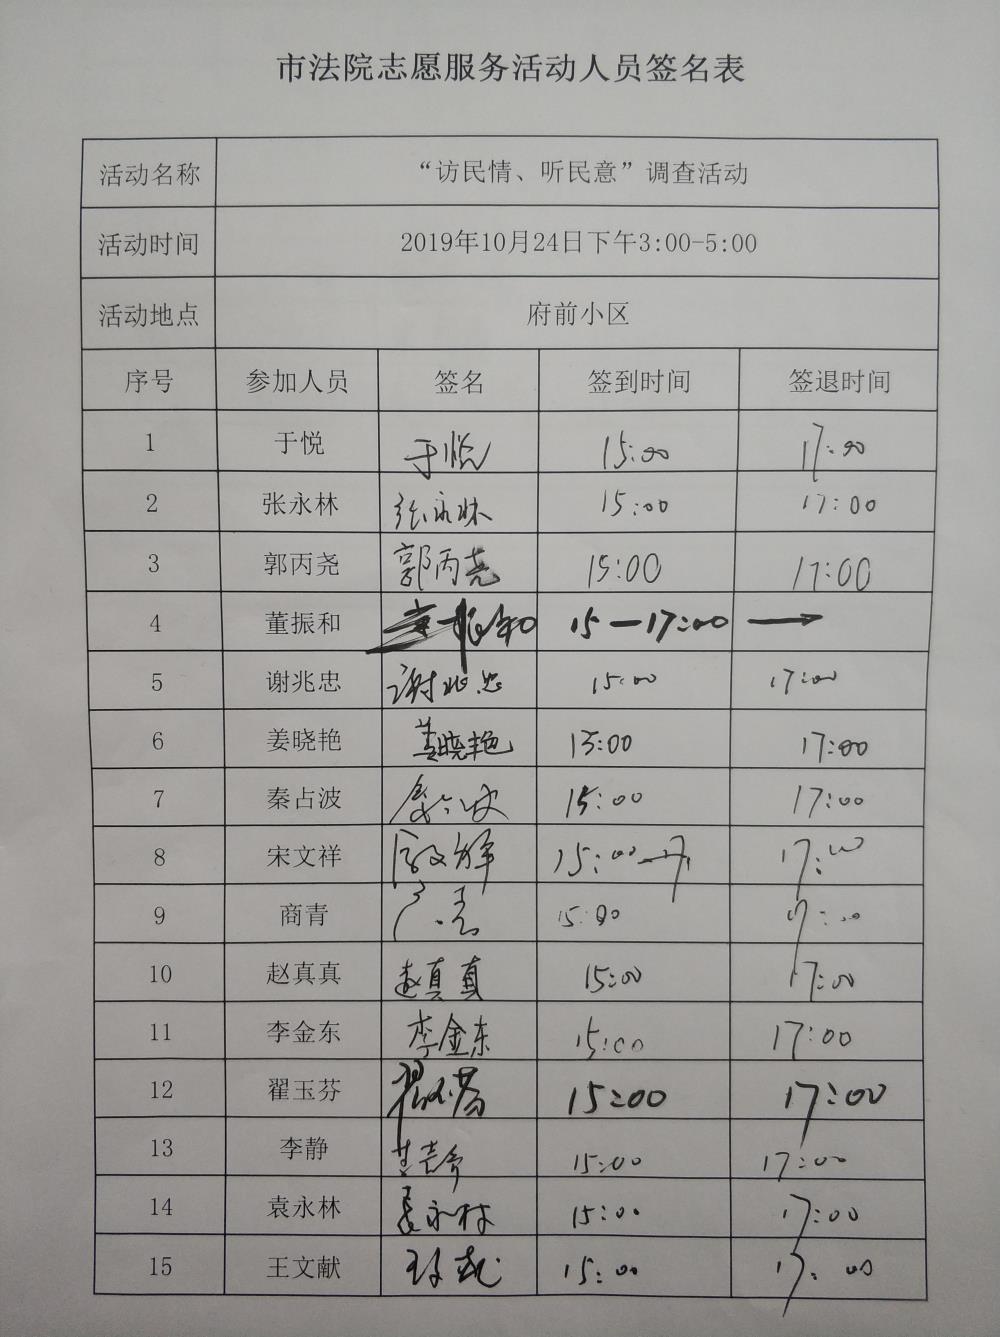 市法院志愿服务活动人员签名表
活动名称 “访民情、听民意”调查活动
活动时间 2019年10月24日下午3:00-5:00
活动地点 府前小区
序号 参加人员 签名 签到时间 签退时间
1 于悦 于悦 15:00 17:00
2 张永林 张永林 15:00 17:00
3 郭丙尧 郭丙尧 15:00 17:00
4 董振和 董振和 15—17:00 →
5 谢兆忠 谢兆忠 15:00 17:00
6 姜晓艳 姜晓艳 15:00 17:00
7 秦占波 秦占波 15:00 17:00
8 宋文祥 15:00 17:00
9 商青 商青 15:00 17:00
10 赵真真 赵真真 15:00 17:00
11 李金东 李金东 15:00 17:00
12 翟玉芬 翟玉芬 15:00 17:00
13 李静 李静 15:00 17:00
14 袁永林 袁永林 15:00 17:00
15 王文献 王文献 15:00 17:00